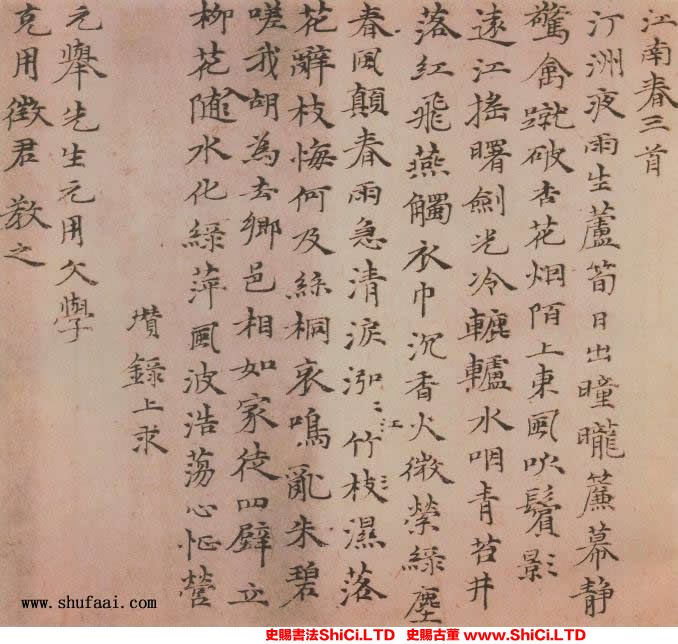 江南春三首
汀洲夜雨生蘆筍日出曈曨簾幕靜
驚禽蹴破杏花烟陌上東風吹鬢影
遠江搖曙劍光冷轆轤水咽青苔井
落紅飛燕觸衣巾沉香火微縈綠塵
春風顛春雨急清淚泓泓江竹枝濕落
花辭枝悔何及絲桐哀鳴亂朱碧
嗟我胡為去鄉邑相如家徒四壁立
柳花隨水化綠萍風波浩蕩心怔營
瓚錄上求
元舉先生元用文學
克用徵君教之
www.shufaai.com
史賜書法ShiCi.LTD 史賜古董 www.ShiCi.LTD